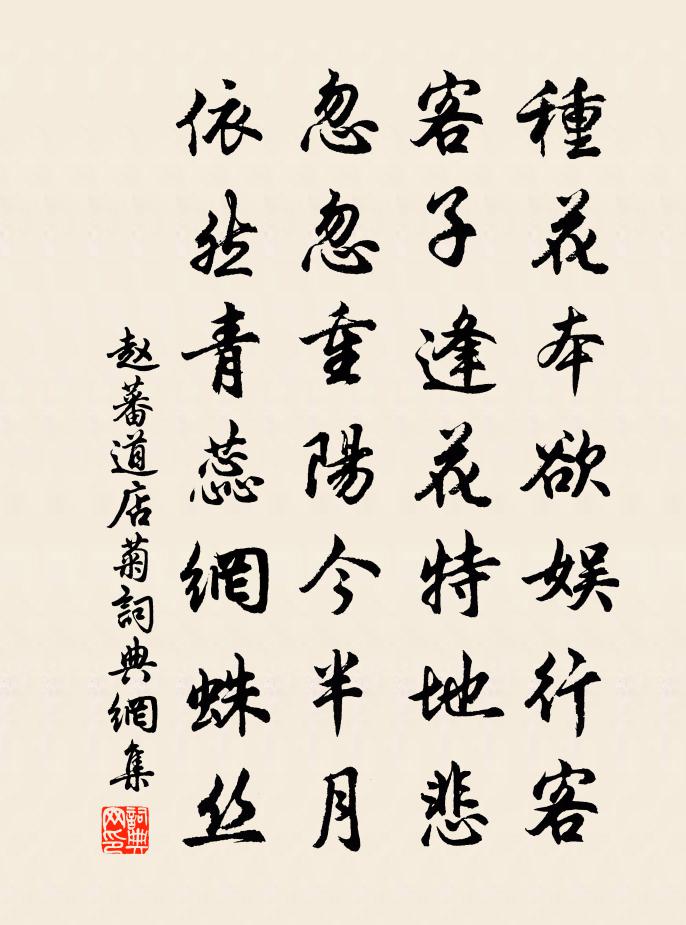 種花本欲娱行客
客子逢花特地悲
忽忽重陽今半月
依然青蕊網蛛丝
赵蕃道店菊詞典網集
詞典网印